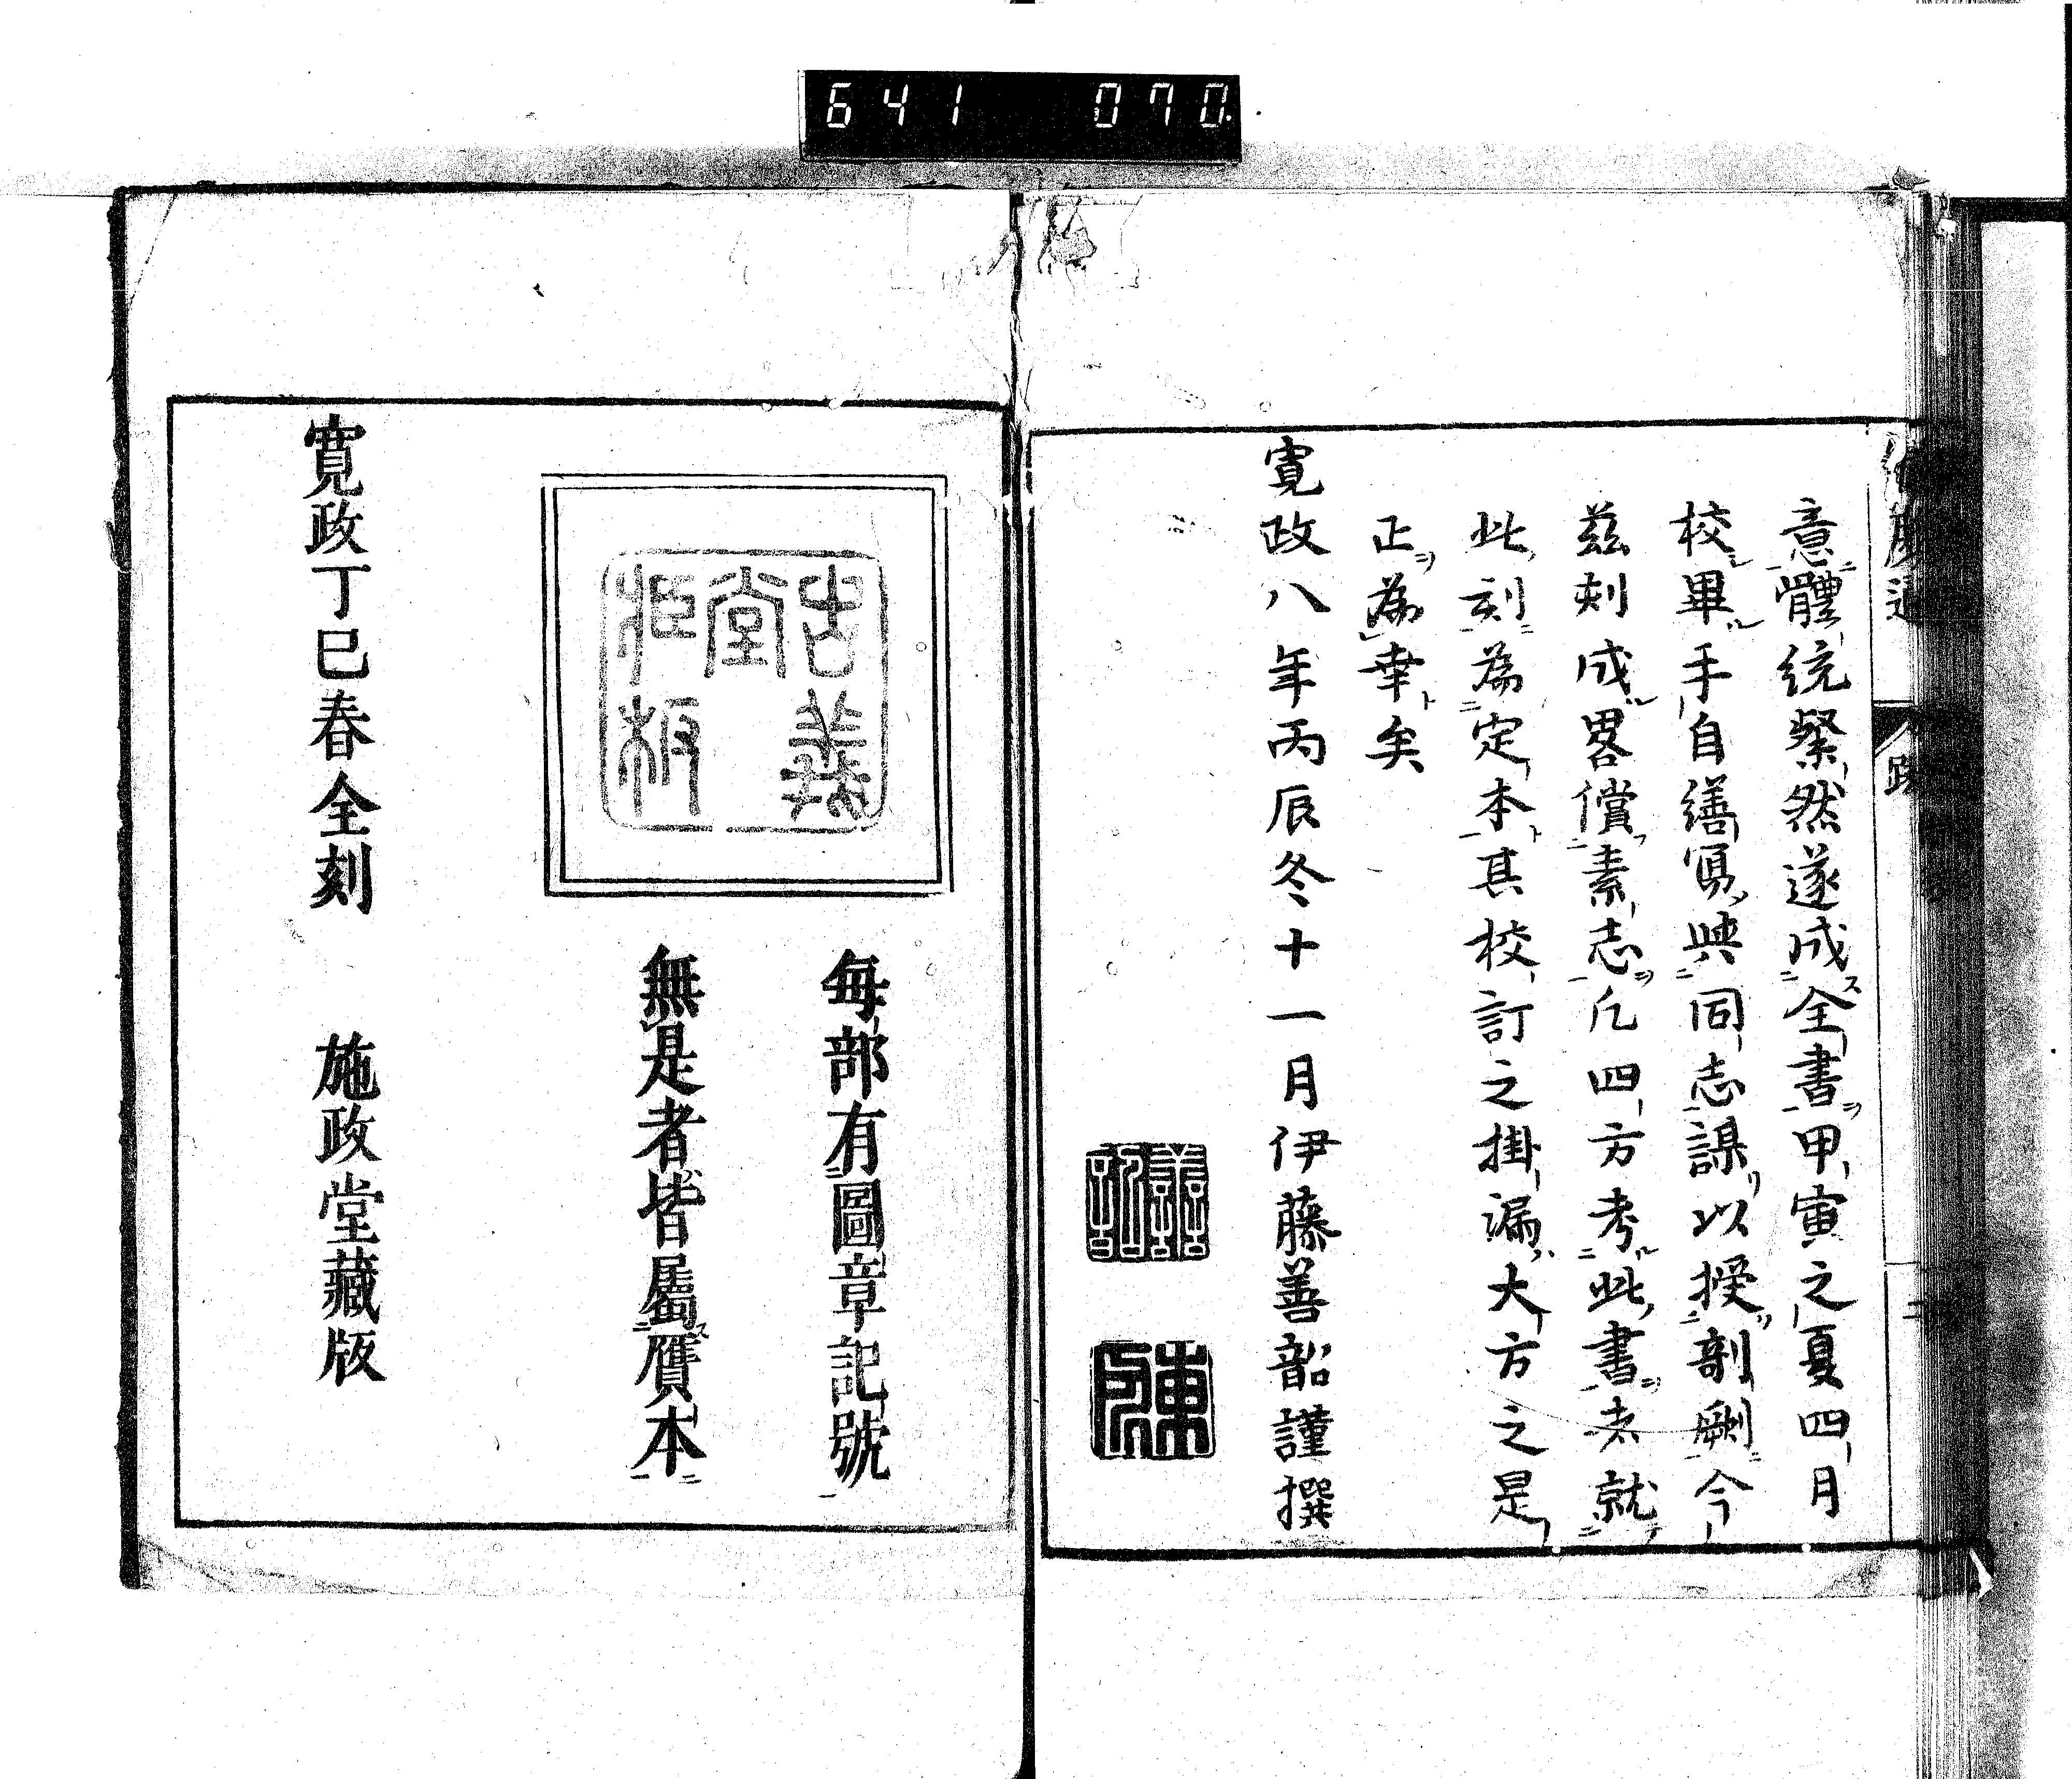 641 070
意體統粲然遂成全書甲寅之夏四月
校畢手自繕寫與同志謀以授剞劂今
茲刻成畧償素志凡四方考此書者就
此刻為定本其校訂之掛漏大方之是
正為幸矣
寬政八年丙辰冬十一月伊藤善韶謹撰
善韶
東所
古義
堂
藏板
每部有圖章記號
無是者皆屬贋本
寬政丁巳春全刻 施政堂藏版